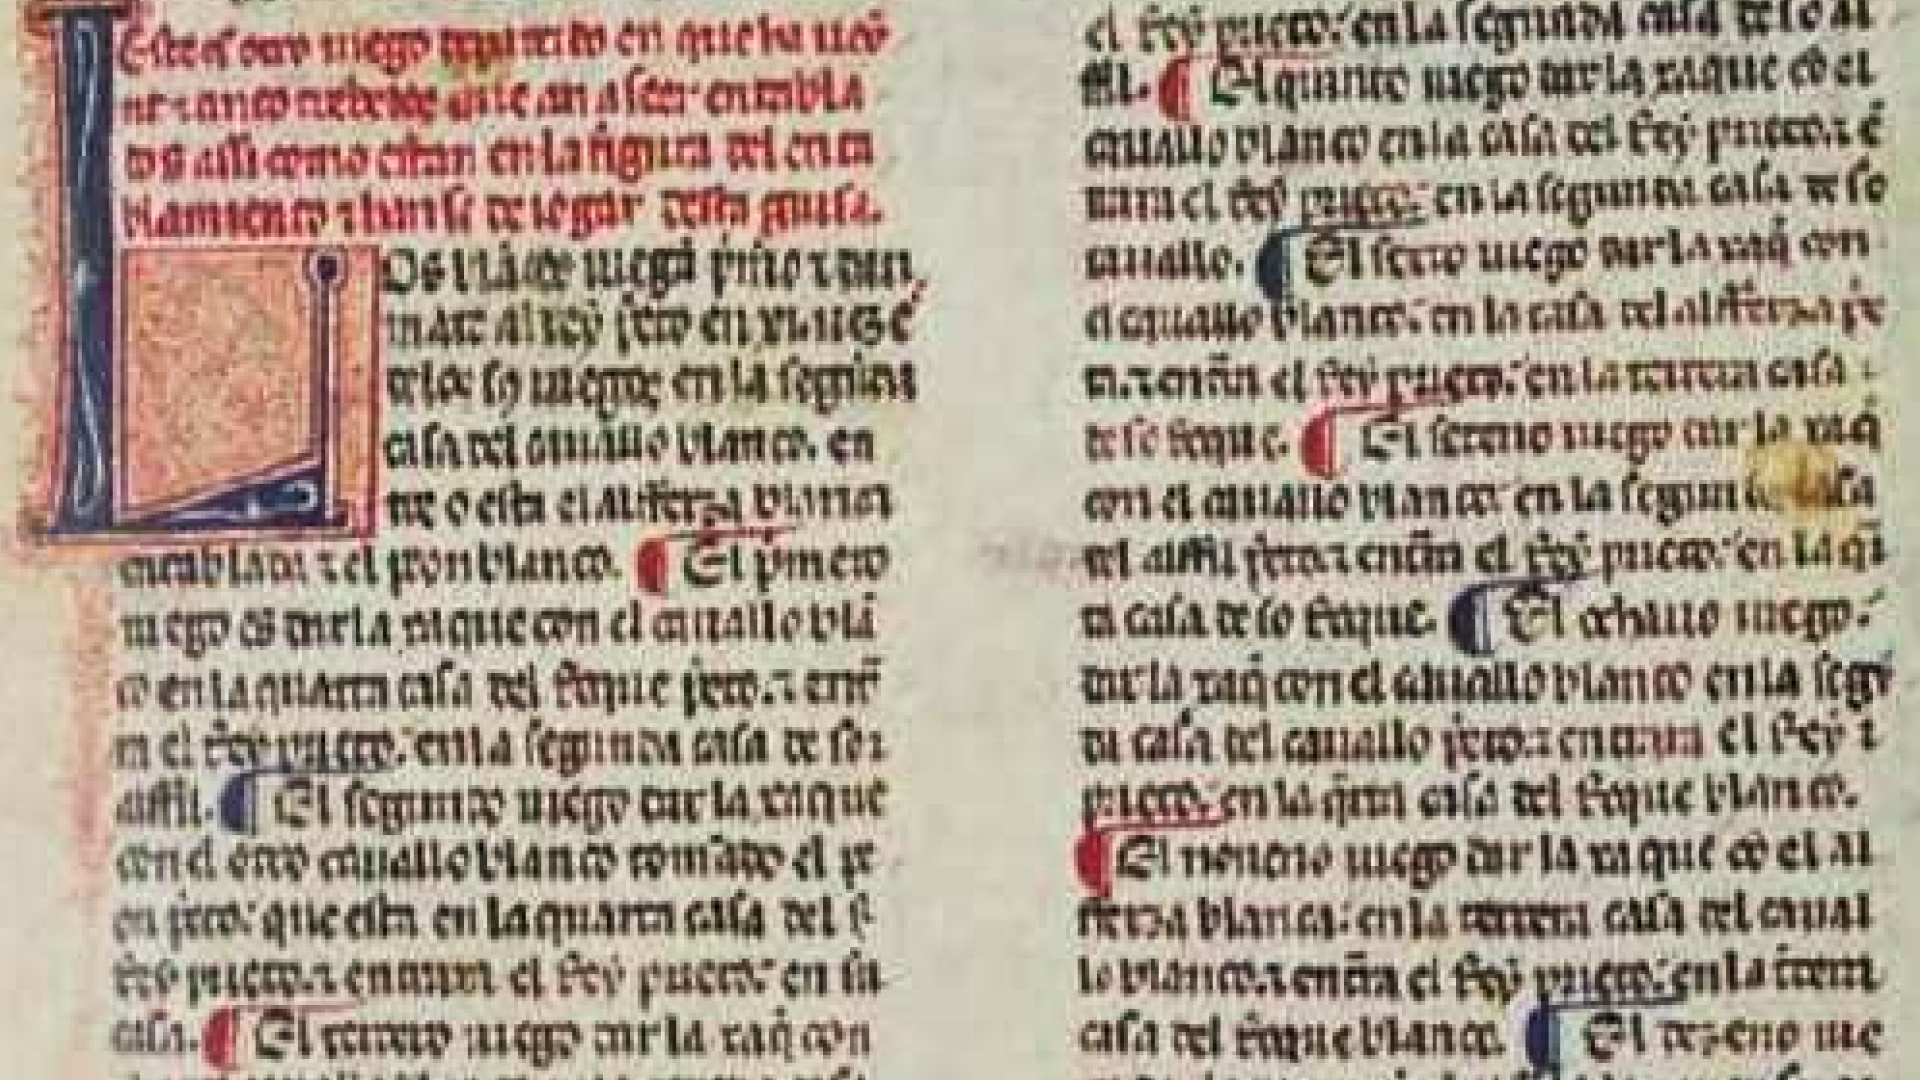 Este es otro iuego departido en que ha ueỹ
te τ anco trebeios que an a seer entabla
dos assi como estan en la figura del enta
blamiento τ han se de iogar desta guisa.
Los blancos iuegan primero τ dan
mate al rey prieto en
de los sos iuegos en la segunda
casa del cauallo blanco. en
de o esta el alfferza blanca
entablada τ el peon blanco. ¶ El p̃mero
iuego es dar la xaque con el cauallo blã
co en la quarta casa del roque p̃eto. τ ent̃
ra el Rey prieto. en la segunda casa de so
alffil. ¶ El segundo iuego dar la xaque
con el otro cauallo blanco tomãdo el pe
on p̃eto. que esta en la quarta casa del R
ey prieto. τ entrara el Rey prieto. en su
casa. ¶ El tercero iuego dar la xaq̃ con
el Rey prieto. en la segunda casa de so al
ffil. ¶ El quinto iuego dar la xaque cõ el
cauallo blanco en la casa del Rey prieto. τ ẽ
trara el Rey prieto. en la segunda casa de so
cauallo. ¶ El sesto iuego dar la xaq̃ con
el cauallo blanco. en la casa del alfferza p̃e
ta. τ entrã el Rey prieto. en la tercera casa
de so Roque. ¶ El seteno iuego dar la xaq̃
con el cauallo blanco en la segunda casa
del alffil p̃eto. τ entrã el Rey prieto. en la q̃r
ta casa de so Roque. ¶ El ochauo iuego.
dar la xaq̃ con el cauallo blanco en la segũ
da casa del cauallo p̃eto. τ entrara el Rey
prieto. en la q̃rta casa del Roque blanco.
¶ El noueno iuego dar la xaque cõ el al
fferza blanca. en la tercera casa del caual
lo blanco. τ entrã el Rey prieto. en la tercera
casa del Roque blanco. ¶ El dezeno iue